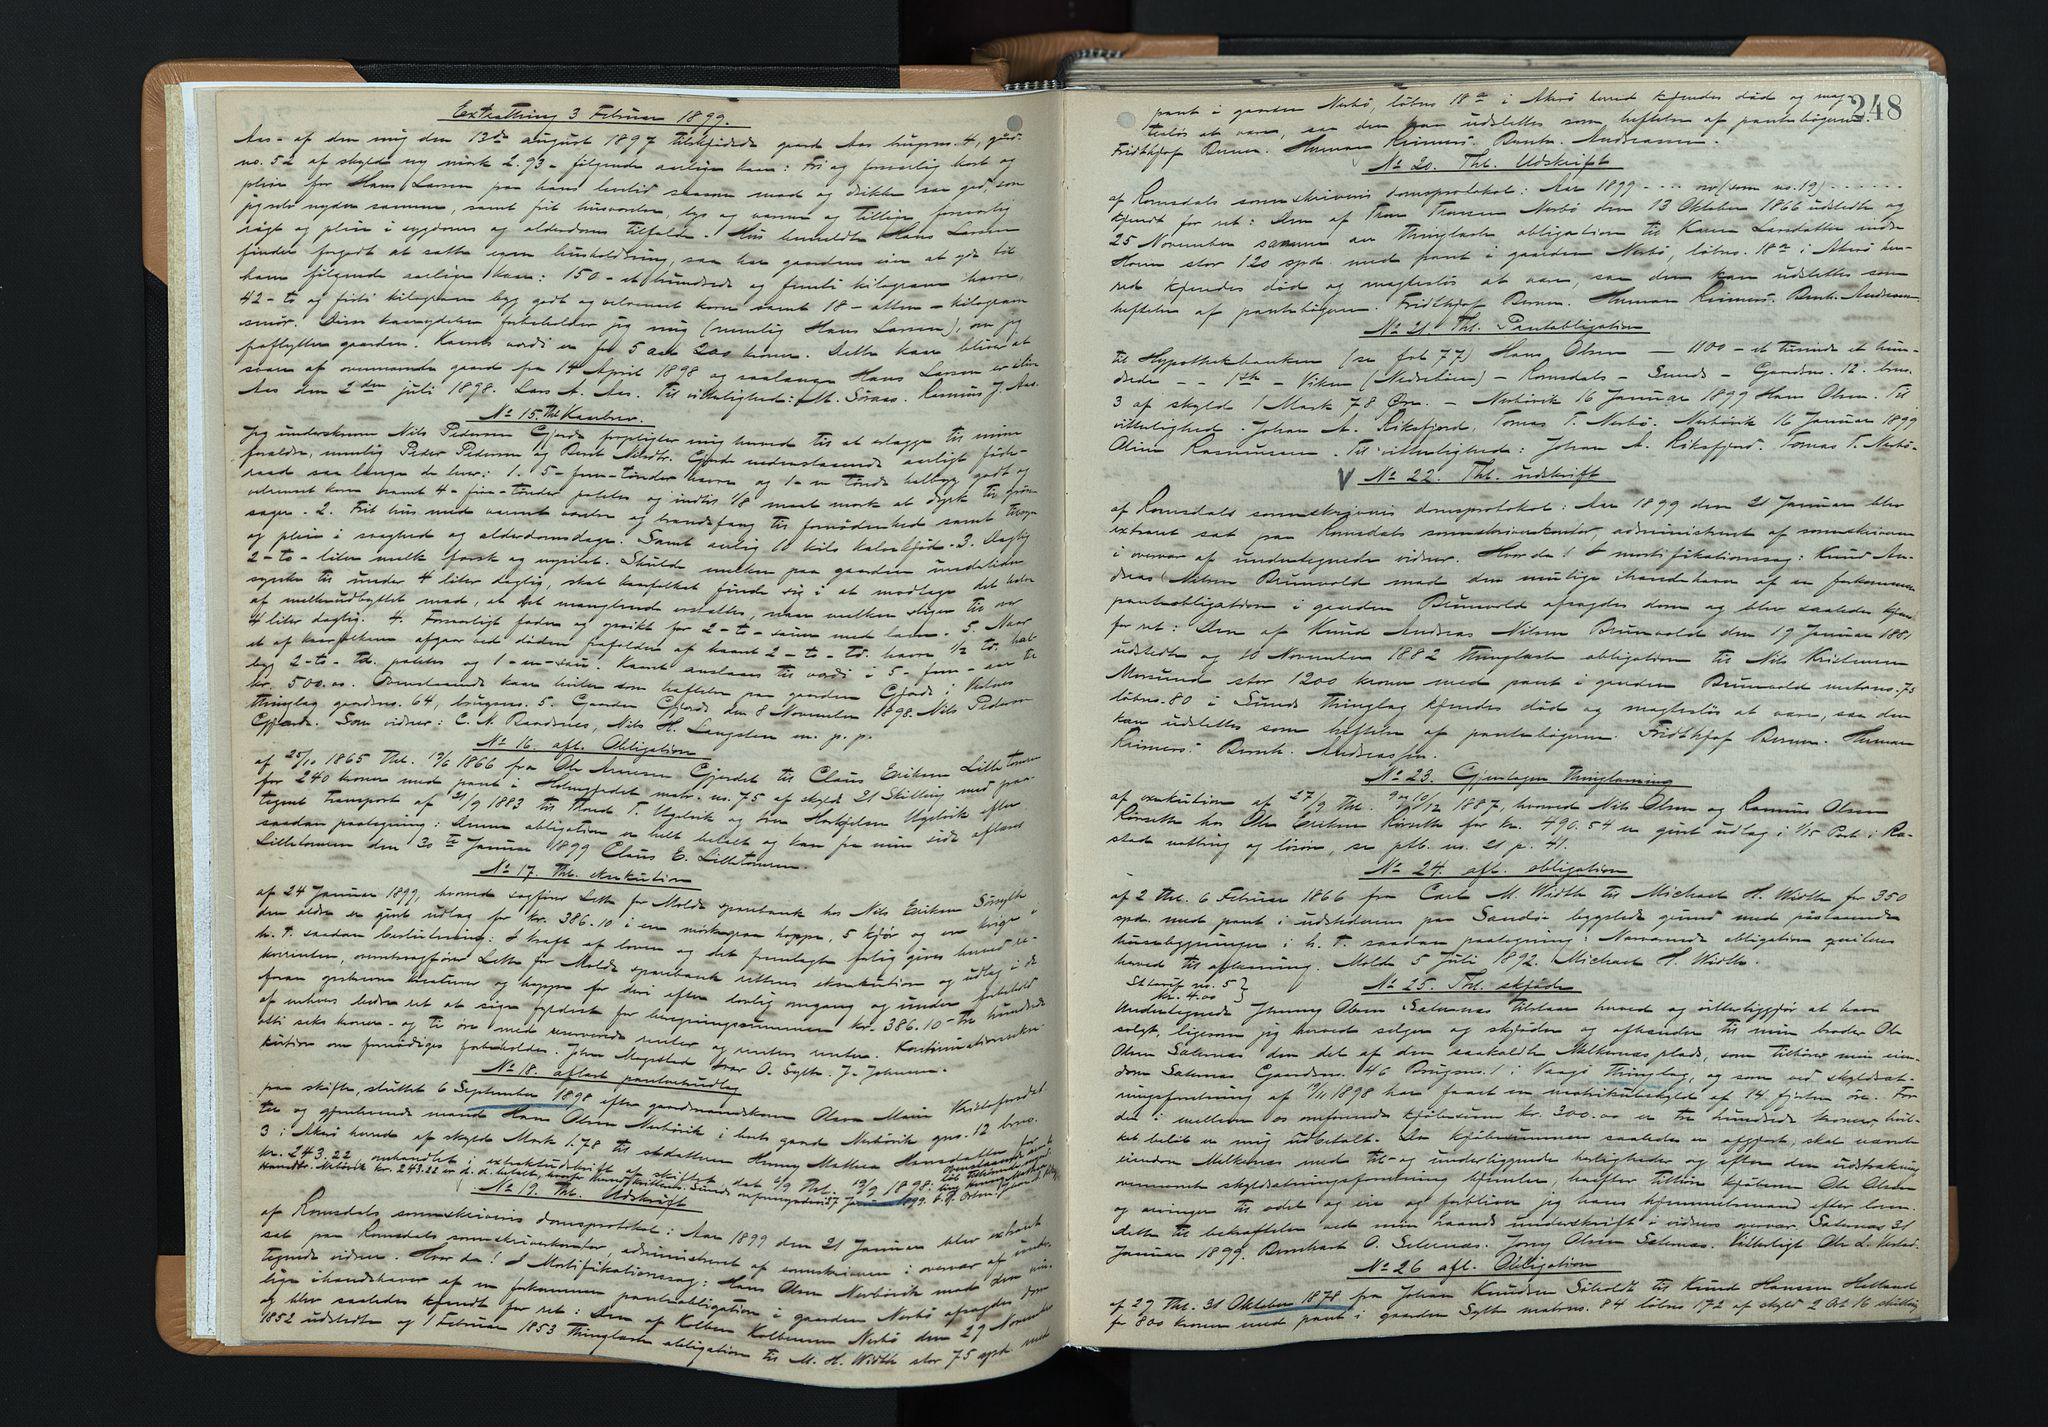 Extrathing 3 Februar 1899.
Aas - af den mig den 13de august 1897 tilskjødede gaard Aas brugsno. 4, grd-
no. 52 af skyld ny mark 2.93 - følgende aarlige kaar: Fri og forsvarlig kost og
pleie for Hans Larsen paa hans levetid saavel mad og drikke saa god som
jeg selv nyder samme, samt frit husværelse, lys og varme og tillige forsvarlig
røgt og pleie i sygdoms og alderdoms tilfælde. Hvis bemeldte Hans Larsen
finder forgodt at sætte egen husholdning, saa har gaardens eier at yde til
ham følgende aarlige kaar: 150 - et hundrede og femti kilogram havre,
42 - to og firti kilogram byg godt og velrenset korn samt 18 - atten - kilogram
smør. Denne kaarydelse forbeholder jeg mig (nemlig Hans Larsen), om jeg
fraflytter gaarden. Kaarets værdi er for 5 aar 200 kroner. Dette kaar bliver at
svare af ovennævnte gaard fra 14 April 1898 og saalænge Hans Larsen er ilive
Aas den 2den juli 1898. Lars A. Aas. Til vitterlighed: M. Søraas. Rasmus J. Aas.
No 15. Thl. Kaarbrev.
Jeg underskrevne Nils Pedersen Gjerde forpligter mig herved til at erlægge til mine
forældre, nemlig Peder Pedersen og Berit Nilsdtr. Gjerde nedenstaaende aarligt føde-
raad saa længe de lever: 1. 5 - fem - tønder havre og 1 - en tønde halbyg godt og
velrenset korn samt 4 - fire - tønder poteter og indtil 1/8 maal mark at dyrke til grøn-
sager. 2. Frit hus med varmt værelse og brændefang til fornødenhed samt tilsyn
og pleie i svaghed og alderdomsdage. Samt aarlig 10 kilo kalvekjød. 3. Daglig
2 - to - liter melk fersk og nysilet. Skulde melken paa gaarden imidlertid
synke til under 4 liter daglig, skal kaarfolket finde sig i at modtage det halve
af melkeudbyttet mod, at det manglende erstattes, naar melken stiger til over
4 liter daglig. 4. Forsvarligt foder og røgt for 2 - to - sauer med lam. 5. Naar
et af kaarfolkene afgaar ved døden frafalder af kaaret 2 - to - td. havre 1/2 td. hal-
byg 2 - to - td. poteter og 1 - en - sau. Kaaret ansættes til værdi i 5 - fem - aar til
kr. 500.00. Ovenstaaende kaar hviler som heftelse paa gaarden Gjerde i Vestnes
thinglag gaardsno. 64, brugsno. 5. Gaarden Gjerde den 8 November 1898. Nils Pedersen
Gjerde. Som vidner: C. A. Raadnes, Nils H. Langsten m. p. p.
No 16. afl. Obligation
af 25/10 1865 Thl. 19/6 1866 fra Ole Gjerdet til Claus Eriksen Lilletonnen
for 240 kroner med pant i Holmgjerdet matr. no. 75 af skyld 21 Skilling med paa-
tegnet Transport af 21/9 1883 til Tronds T. Ugelvik og Iver Ugelvik efter
saadan paategning: Denne obligation er helt betalt og kan fra min side aflæses
Lilletonnen den 30te Januar 1899 Claus E. Lilletonnen.
No 17. Thl. eksekution
af 24 Januar 1899, hvorved sagfører Lette for Molde sparebank hos Nils Eriksen Sørsylte
den ældre er givet udlag for kr. 386.10 i en mørkegraa hoppe, 5 kjør og en kvige
h. t. saadan beslutning: I kraft af loven og det fremlagte forlig gives herved re-
kvirenten, overretssagfører Lette for Molde sparebank rettens eksekution og udlag i de
foran opskrevne kreaturer og hoppe for deri efter lovlig omgang og under forbehold
af enhvers bedre ret at søge gyldest for bevægningssummen kr. 386.10 - Tre hundrede
otti seks kroner - og ti øre med reserverede renter og renters renter. Kontinuationsekse-
kution om fornødiges forbeholdes. John Mogstad. Ivar O. Sylte. J. Johnsen.
No 18. aflæst panteudlæg
paa skifte, sluttet 6 September 1898 efter gaardmandskone Olava Marie Kristofersdat-
ter og gjenlevende mand Hans Olsen Nerbøvik i dets gaard Nerbøvik gno. 12 brno.
3 i Akerø herred af skyld Mark 1.78 til stedatteren Henny Mathea Hansdatter for
kr. 243.22 omhandlet i extraktudskrift af skiftet, dat. 6/9 Thl. 19/9 1898:
No 19. Thl. Udskrift
af Romsdals sorenskriveris domsprotokol: Aar 1899 den 21 Januar blev extraret
sat paa Romsdals sorenskriverkontor, administreret af sorenskriveren i overvær af under-
tegnede vidner. Hvor da: I Mortifikationssag: Hans Olsen Nerbøvik mod den mu-
lige ihændehaver af en forkommen panteobligation i gaarden Nerbø afsagdes dom
og blev saaledes kjendt for ret: Den af Kolben Kolbensen Nerbø den 29 November
1852 udstedte og 1 Februar 1853 Thinglæste obligation til M. H. Width stor 75 spd. med
248
pant i gaarden Nerbø, løbno 18a i Akerø herred kjendes død og mag-
tesløs at være, saa den kan udslettes som heftelse af pantebøgerne.
Fridthjof Berner. Herman Reimers. Bernh. Andreassen.
No 20. Thl. Udskrift
af Romsdals sorenskriveris domsprotokol: Aar 1899 - - - - osv (som no. 19) - - - - - -
kjendt for ret: Den af Tron Tronsen Nerbø den 13 Oktober 1866 udstedte og
25 November samme aar Thinglæste obligation til Karen Larsdatter indre
Haven stor 120 spd. med pant i gaarden Nerbø, løbno. 18a i Akerø her-
red kjendes død og magtesløs at være, saa den kan udslettes som
heftelse af pantebøgerne. Fridthjof Bernер. Herman Reimers. Bernh. Andreassen
No 21. Thl. Pantobligation
til Hypothekbanken (se fol 77) Hans Olsen — 1100 - et tusinde et hun-
drede - - 1ste - Viken (Nedrebøen) - Romsdals - Sunds - Gaardsno. 12. brno.
3 af skyld 1 Mark 78 Øre. - Nerbøvik 16 Januar 1899 Hans Olsen. Til
vitterlighed. Johan A. Rikefjord, Tomas T. Nerbø. Nerbøvik 16 Januar 1899
Oline Rasmussen. Til vitterlighed: Johan A. Rikefjord. Tomas T. Nerbø.
V No 22. Thl. udskrift
af Romsdals sorenskriveris domsprotokol: Aar 1899 den 21 Januar blev
extraret sat paa Romsdals sorenskriverkontor, administreret af sorenskriveren
i overvær af undertegnede vidner. Hvor da: I mortifikationssag: Knud An-
dreas Nilsen Brunvold mod den mulige ihændehaver af en forkommen
panteobligation i gaarden Brunvold afsagdes dom og blev saaledes kjendt
for ret: Den af Knud Andreas Nilsen Brunvold den 19 Januar 1881
udstedte og 10 November 1882 thinglæste obligation til Nils Kristensen
Morsund stor 1200 kroner med pant i gaarden Brunvold matrno. 75
løbno. 80 i Sunds Thinglag kjendes død og magtesløs at være, saa den
kan udslettes som heftelse af pantebøgerne. Fridthjof Bernер. Herman
Reimers. Bernh. Andreassen.
No 23. Gjentagen Thinglæsning
af exekution af 27/9 Thl. 9 og 10/12 1887, hvorved Nils Olsen og Rasmus Olsen
Rørsethr hos Ole Eriksen Rørsethr for kr. 490.54 er givet udlæg i 1/15 Part i Ra-
stad vætting og løsøre, se ptb. no. 21 p. 41.
No 24. afl. obligation
af 2 Thl. 6 Februar 1866 fra Carl M. Width til Michael H. Width for 350
spd. med pant i udstederens paa Sandø byggede grund med paastaaende
husebygninger i h. t. saadan paategning: Nærværende obligation qviteres
herved til aflæsning. Molde 5 Juli 1892. Michael H. Width.
No 25. Thl. skjøde
St. tarif no. 5 }
Kr. 4.00 }
Undertegnede Johnny Olsen Salernæs tilstaar herved og vitterliggjør at have
solgt, ligesom jeg herved sælger og skjøder og afhænder til min broder Ole
Olsen Salernæs den del af den saakaldte Melkernæs plads, som tilhører min eien-
dom Salernæs Gaardsno. 46 Brugsno. 1 i Vaagø Thinglag, og som ved skyldsæt-
ningsforretning af 19/11 1898 har faaet en matrikulskyld af 14. fjorten øre. For
det i mellem os omforenede kjøbesum kr. 300.00 er tre hundrede kroner, hvil-
ket beløb er mig udbetalt. Da kjøbesummen saaledes er afgjort, skal nævnte
eiendom Melkernæs med til- og underliggende herligheder og efter den udstrækning
ovennævnt skyldsætningsforretning hjemler, herefter tilhøre kjøberen Ole Olsen
og arvinger til odel og eie og forbliver jeg hans hjemmelsmand efter loven.
Dette til bekræftelse ved min haands underskrift i vidners overvær. Salernæs 31
Januar 1899. Bernhard O. Salernæs. Jony Olsen Salernæs. Vitterligt Ole L. Varhol.
No 26 afl. Obligation
af 29 Thl. 31 Oktober 1878 fra Johan Knudsen Silholdt til Knud Hansen Helland
for 800 kroner med pant i gaarden Sylte matrno. 84 løbno 172 af skyld 2 Ort 16 skilling